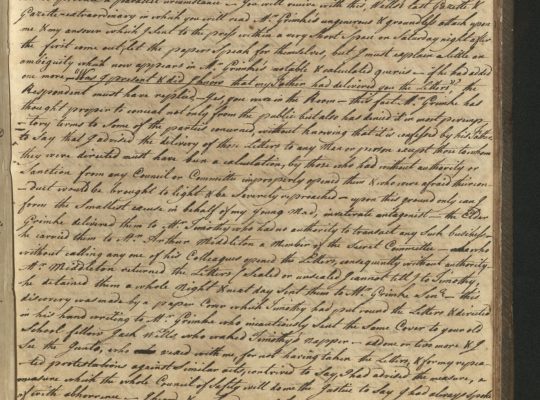 You will receive with this, Wells's last Gazette &
Gazette extraordinary in which you will read Mr. Grimké's ungenerous & groundless attack upon
me & my answer which I sent to the press within a very short space on Saturday night after
the first come out, let the papers speak for themselves but I must explain a little on
ambiguity which now appears in Mr. Grimké's notable & calculated queries — if he had added
one more "Was I present & did I know that my Father had delivered you the Letters?" the
Respondent must have replied, Yes you were in the Room — this fact Mr. Grimké has
thought proper to conceal not only from the public but also has denied it in most peremp
-tory terms to some of the parties concerned, without knowing that it is confessed by his Father
to say that I advised the delivery of those Letters to any Man or person except those to whom
they were directed must have been a calculation, by those who had without authority or
Sanction from any Council or Committee improperly opened them & who were afraid their con
-duct would be brought to light & be severely reproached — upon this ground only can I
form the smallest excuse in behalf of my young Mad, inveterate antagonist — the Elder
Grimké delivered them to Mr. Timothy who had no authority to transact any such business —
he carried them to Mr. Arthur Middleton a Member of the Secret Committee — who
without calling any one of his Colleagues opened the Letters, consequently without authority —
Mr. Middleton returned the Letters, sealed or unsealed I cannot tell, to Timothy,
he detained them a whole Night & next day sent them to Mr. Grimké Senr. — this
discovery was made by a paper Cover which Timothy had put round the Letters & directed
in his hand writing to Mr. Grimké who incautiously sent the same Cover to your old
School fellow Jack Wells, who waked Timothy's Napper — add one or two more &
See the Junto, who vexed with me, for not having taken the Letters, & for my repea
-ted protestations against similar acts, contrived to say, I had advised the measure, a
measure which the whole Council of Safety will do me the Justice to say I had always spoke
of with abhorrence —